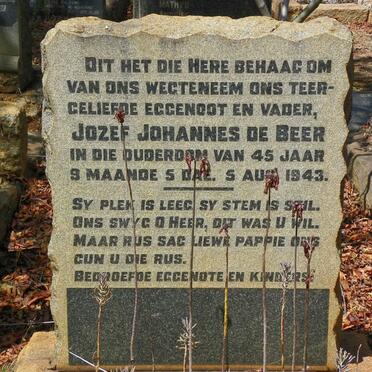 DIT HET DIE HERE BEHAAG OM
VAN ONS WEGTENEEM ONS TEER-
GELIEFDE EGGENOOT EN VADER,
JOZEF JOHANNES DE BEER
IN DIE OUDERDOM VAN 45 JAAR
9 MAANDE 5 DAE. 5 AUG 1943.
SY PLEK IS LEEG, SY STEM IS STIL.
ONS SWYG O HEER, DIT WAS U WIL.
MAAR RUS SAG LIEWE PAPPIE ONS
GUN U DIE RUS.
BEDROEFDE EGGENOTE EN KINDERS.